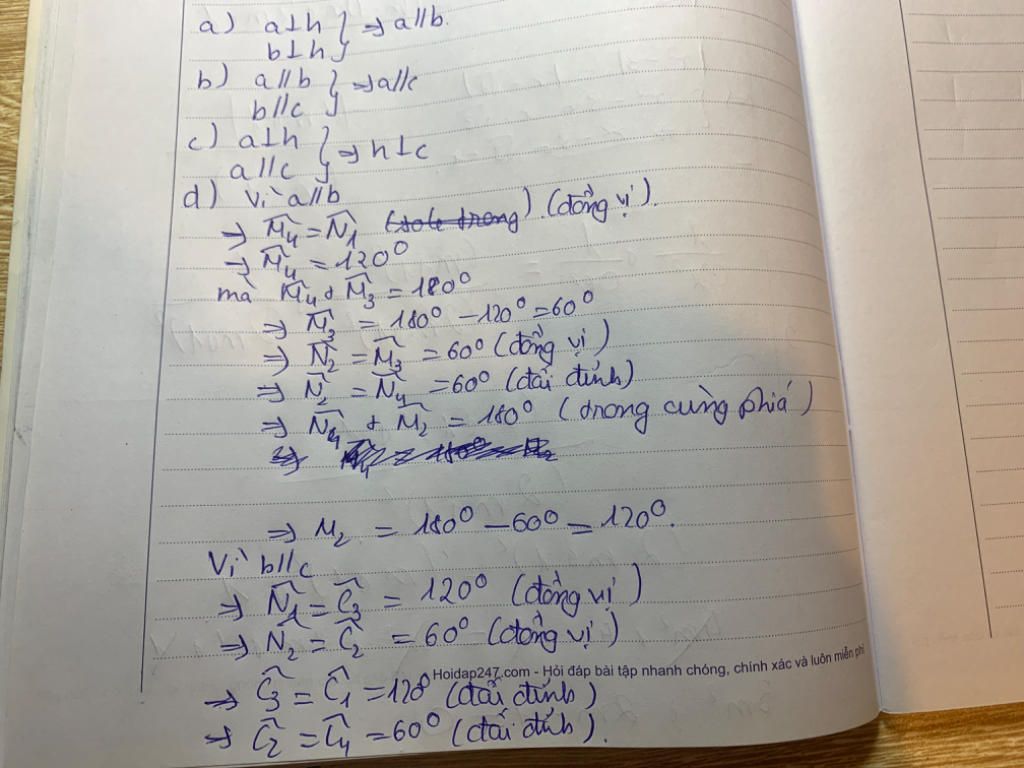 a) a⊥h } ⇒ a//b.
b⊥h
b) a//b } ⇒ a//c
b//c
c) a⊥h } ⇒ h⊥c
a//c
d) Vì a//b
⇒ M̂₄ = N̂₁ (sole trong) (đồng vị).
⇒ M̂₄ = 120⁰
mà M̂₄ + M̂₃ = 180⁰
⇒ M̂₃ = 180⁰ – 120⁰ = 60⁰
⇒ N̂₂ = M̂₃ = 60⁰ (đồng vị)
⇒ N̂₂ = N̂₄ = 60⁰ (đối đỉnh)
⇒ N̂₄ + M̂₂ = 180⁰ (trong cùng phía)
⇒ M₂ = 180⁰ – 60⁰ = 120⁰.
Vì b//c
⇒ N̂₁ = Ĉ₃ = 120⁰ (đồng vị)
⇒ N̂₂ = Ĉ₂ = 60⁰ (đồng vị)
Hoidap247.com - Hỏi đáp bài tập nhanh chóng, chính xác và luôn miễn phí
⇒ Ĉ₃ = Ĉ₁ = 120⁰ (đối đỉnh)
⇒ Ĉ₂ = Ĉ₄ = 60⁰ (đối đỉnh).